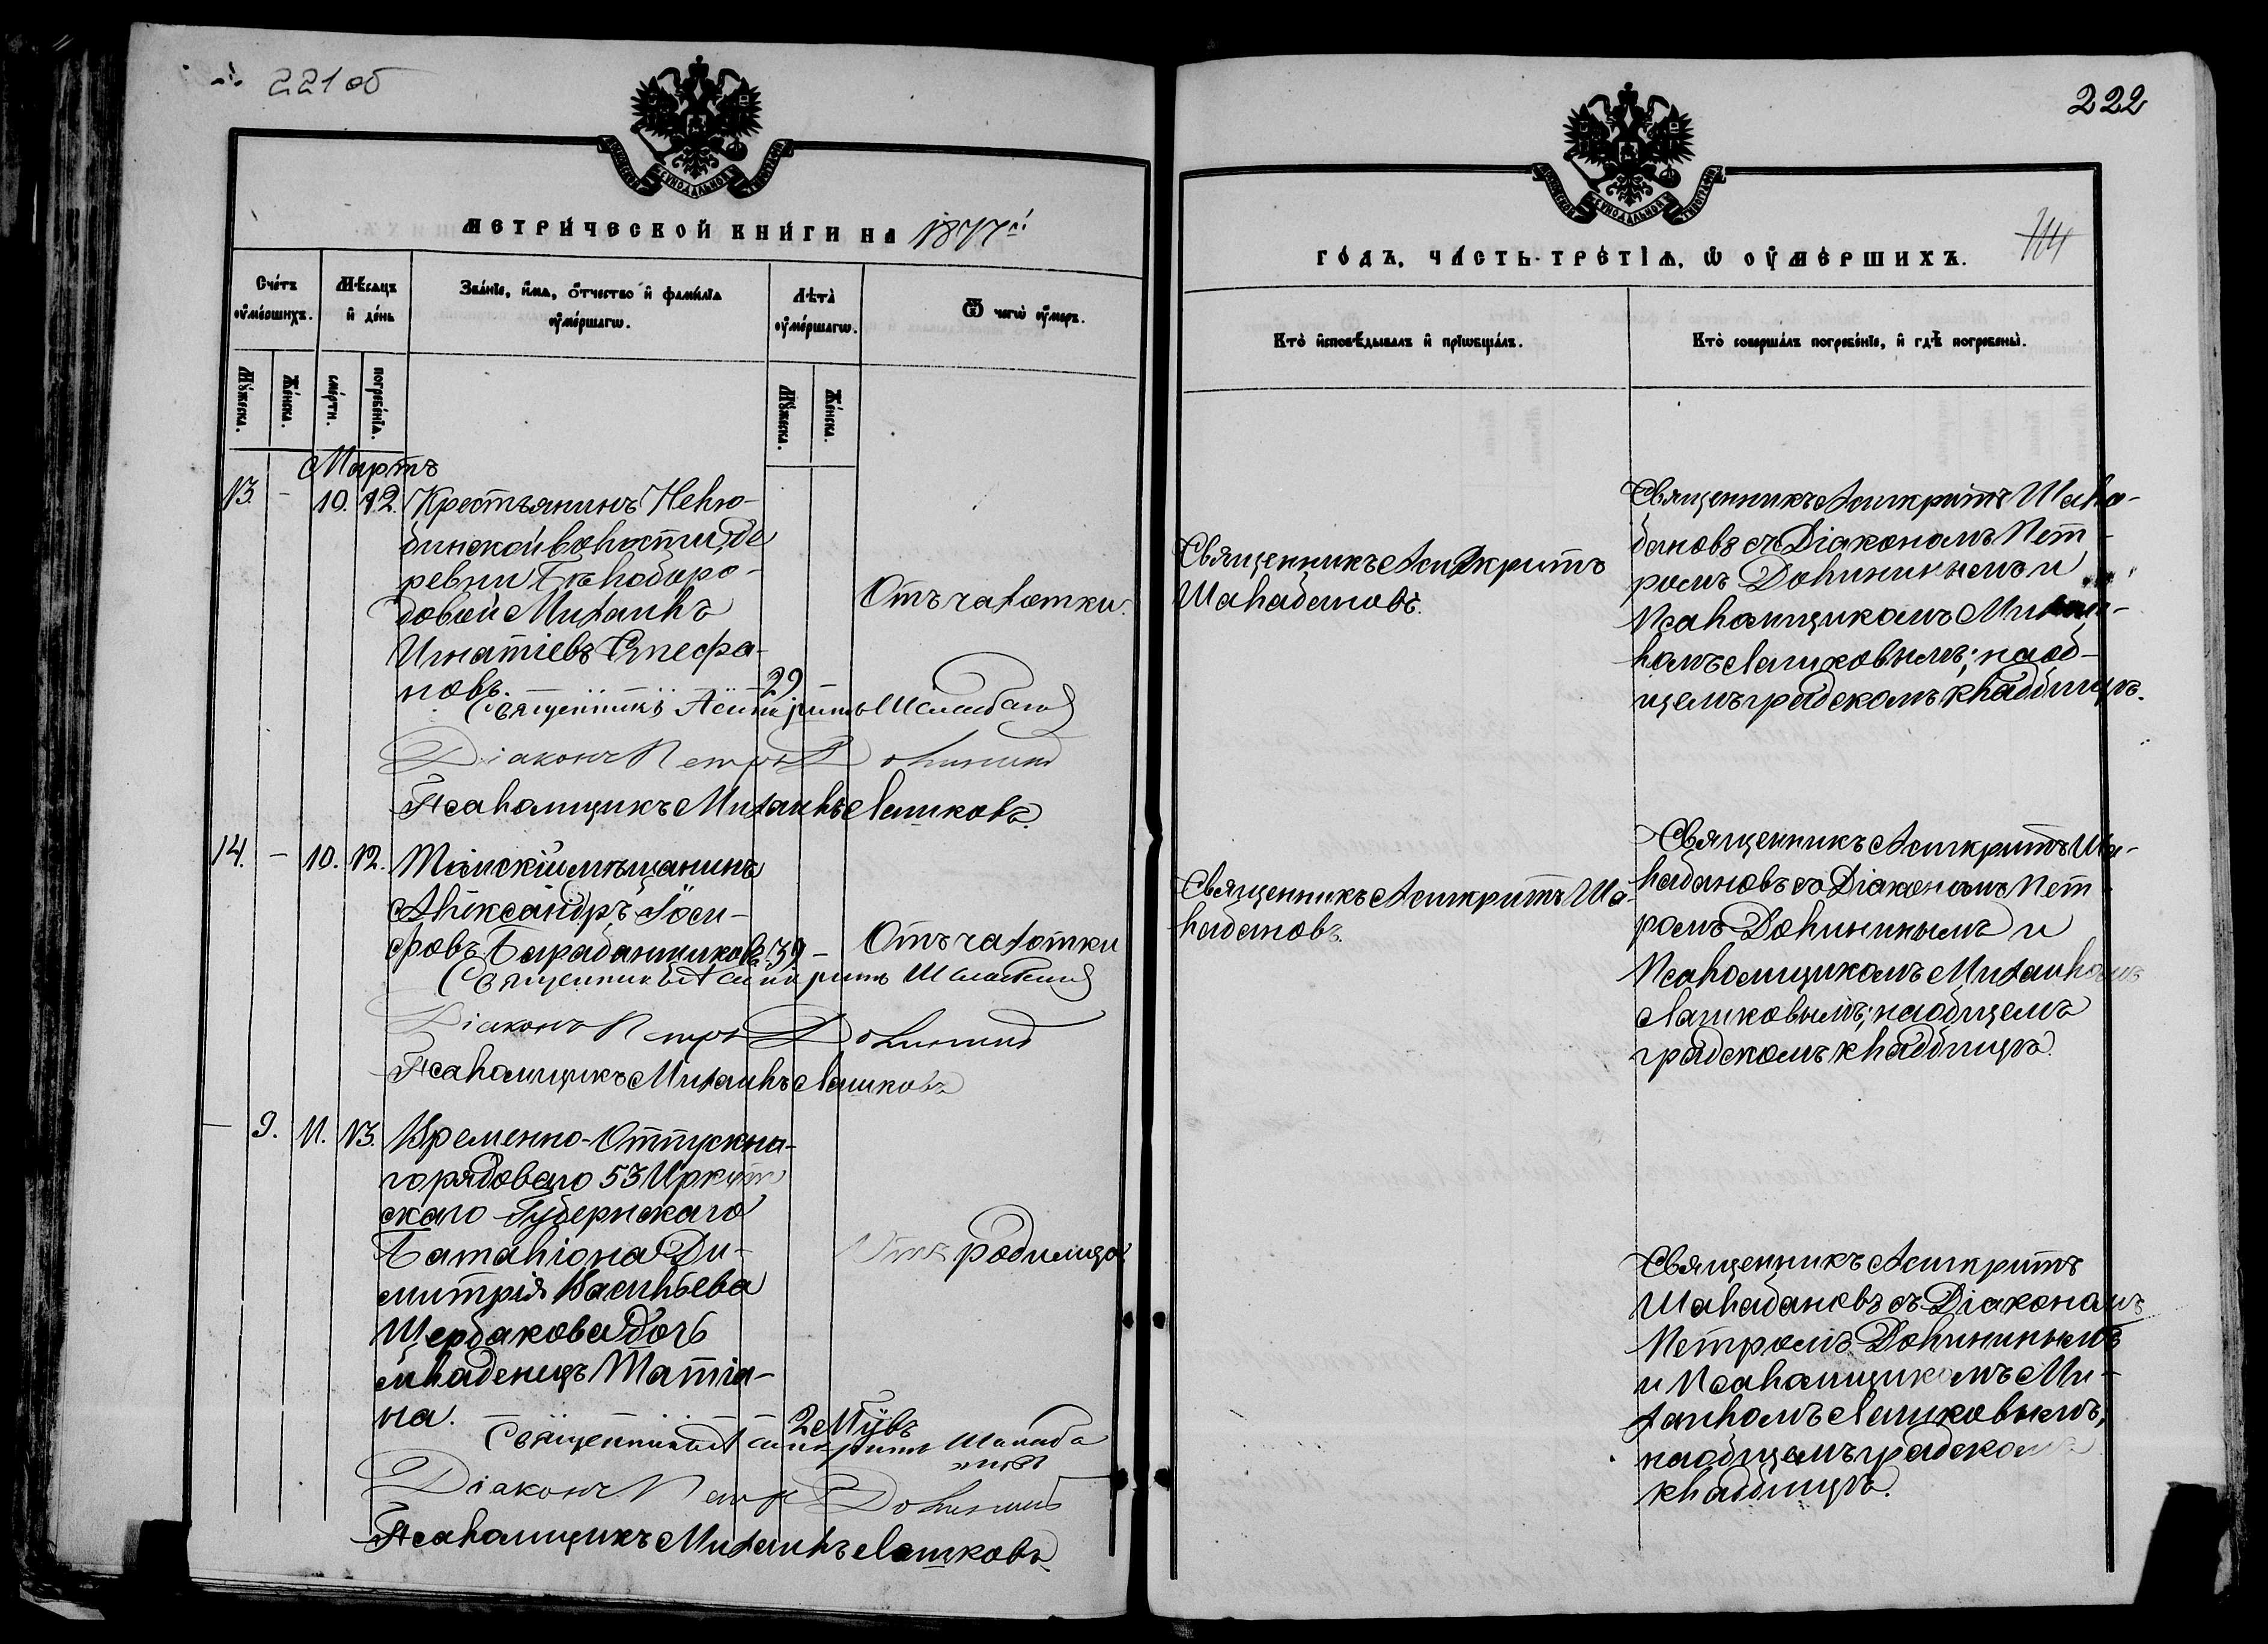 221 об
МЕТРИ́ЧЕСКОЙ КНИ́ГИ НА 1877й
Сче́тъ ᲂу҆ме́ршихъ.
Мѣ́сѧцъ и҆ де́нь
Зва́нїе, и҆́мѧ, ѻ҆́тчество и҆ фами́лїѧ ᲂу҆ме́ршагѡ.
Лѣ́та ᲂу҆ме́ршагѡ.
Ѿ чегѡ̀ ᲂу҆́меръ.
Мꙋ́жеска.
Же́нска.
сме́рти.
погребе́нїѧ.
Мꙋ́жеска.
Же́нска.
Мартъ
13. - 10. 12. Крестьянинъ Нелю-
бинской волости, де
ревни Бѣлоборо-
довой Михаилъ
Игнатіевъ Епефа-
новъ. 29 -
Отъ чахотки.
Священникъ Асигкритъ Шалабановъ
Діаконъ Петръ Долининъ
Псаломщикъ Михаилъ Лашковъ.
14. - 10. 12. Томскій мѣщанинъ
Александръ Іоси-
фовъ Барабанщиковъ. 39 - Отъ чахотки
Священникъ Асигкритъ Шалабановъ
Діаконъ Петръ Долининъ
Псаломщикъ Михаилъ Лашковъ
- 9. 11. 13. Временно-Отпускна-
го рядоваго 53 Иркут
скаго Губернскаго
Баталіона Ди-
митрія Васильева
Щербакова дочь
младенецъ Татіа-
на. 2 мѣ
Отъ родимца
Священникъ Асигкритъ Шалаба
новъ
Діаконъ Петръ Долининъ
Псаломщикъ Михаилъ Лашковъ
222
ГО́ДЪ, ЧА́СТЬ ТРЕ́ТІѦ, Ѡ҆ ОУ҆МЕ́РШИХЪ.
114
Кто̀ и҆сповѣ́дывалъ и҆ прїѡбща́лъ.
Кто̀ соверша́лъ погребе́нїе, и҆ гдѣ̀ погребены̀.
Священникъ Асигкритъ
Шалабановъ.
Священникъ Асигкритъ Шала-
бановъ съ Діакономъ Пет-
ромъ Долининымъ и
Псаломщикомъ Михаи-
ломъ Лашковымъ; на об-
щемъ градскомъ кладбищѣ.
Священникъ Асигкритъ Ша-
лабановъ.
Священникъ Асигкритъ Ша-
лабановъ съ Діакономъ Пет
ромъ Долининымъ и
Псаломщикомъ Михаиломъ
Лашковымъ; на общемъ
градскомъ кладбищѣ.
Священникъ Асигкритъ
Шалабановъ съ Діакономъ
Петромъ Долининымъ
и Псаломщикомъ Ми-
хаиломъ Лашковымъ;
на общемъ градскомъ
кладбищѣ.